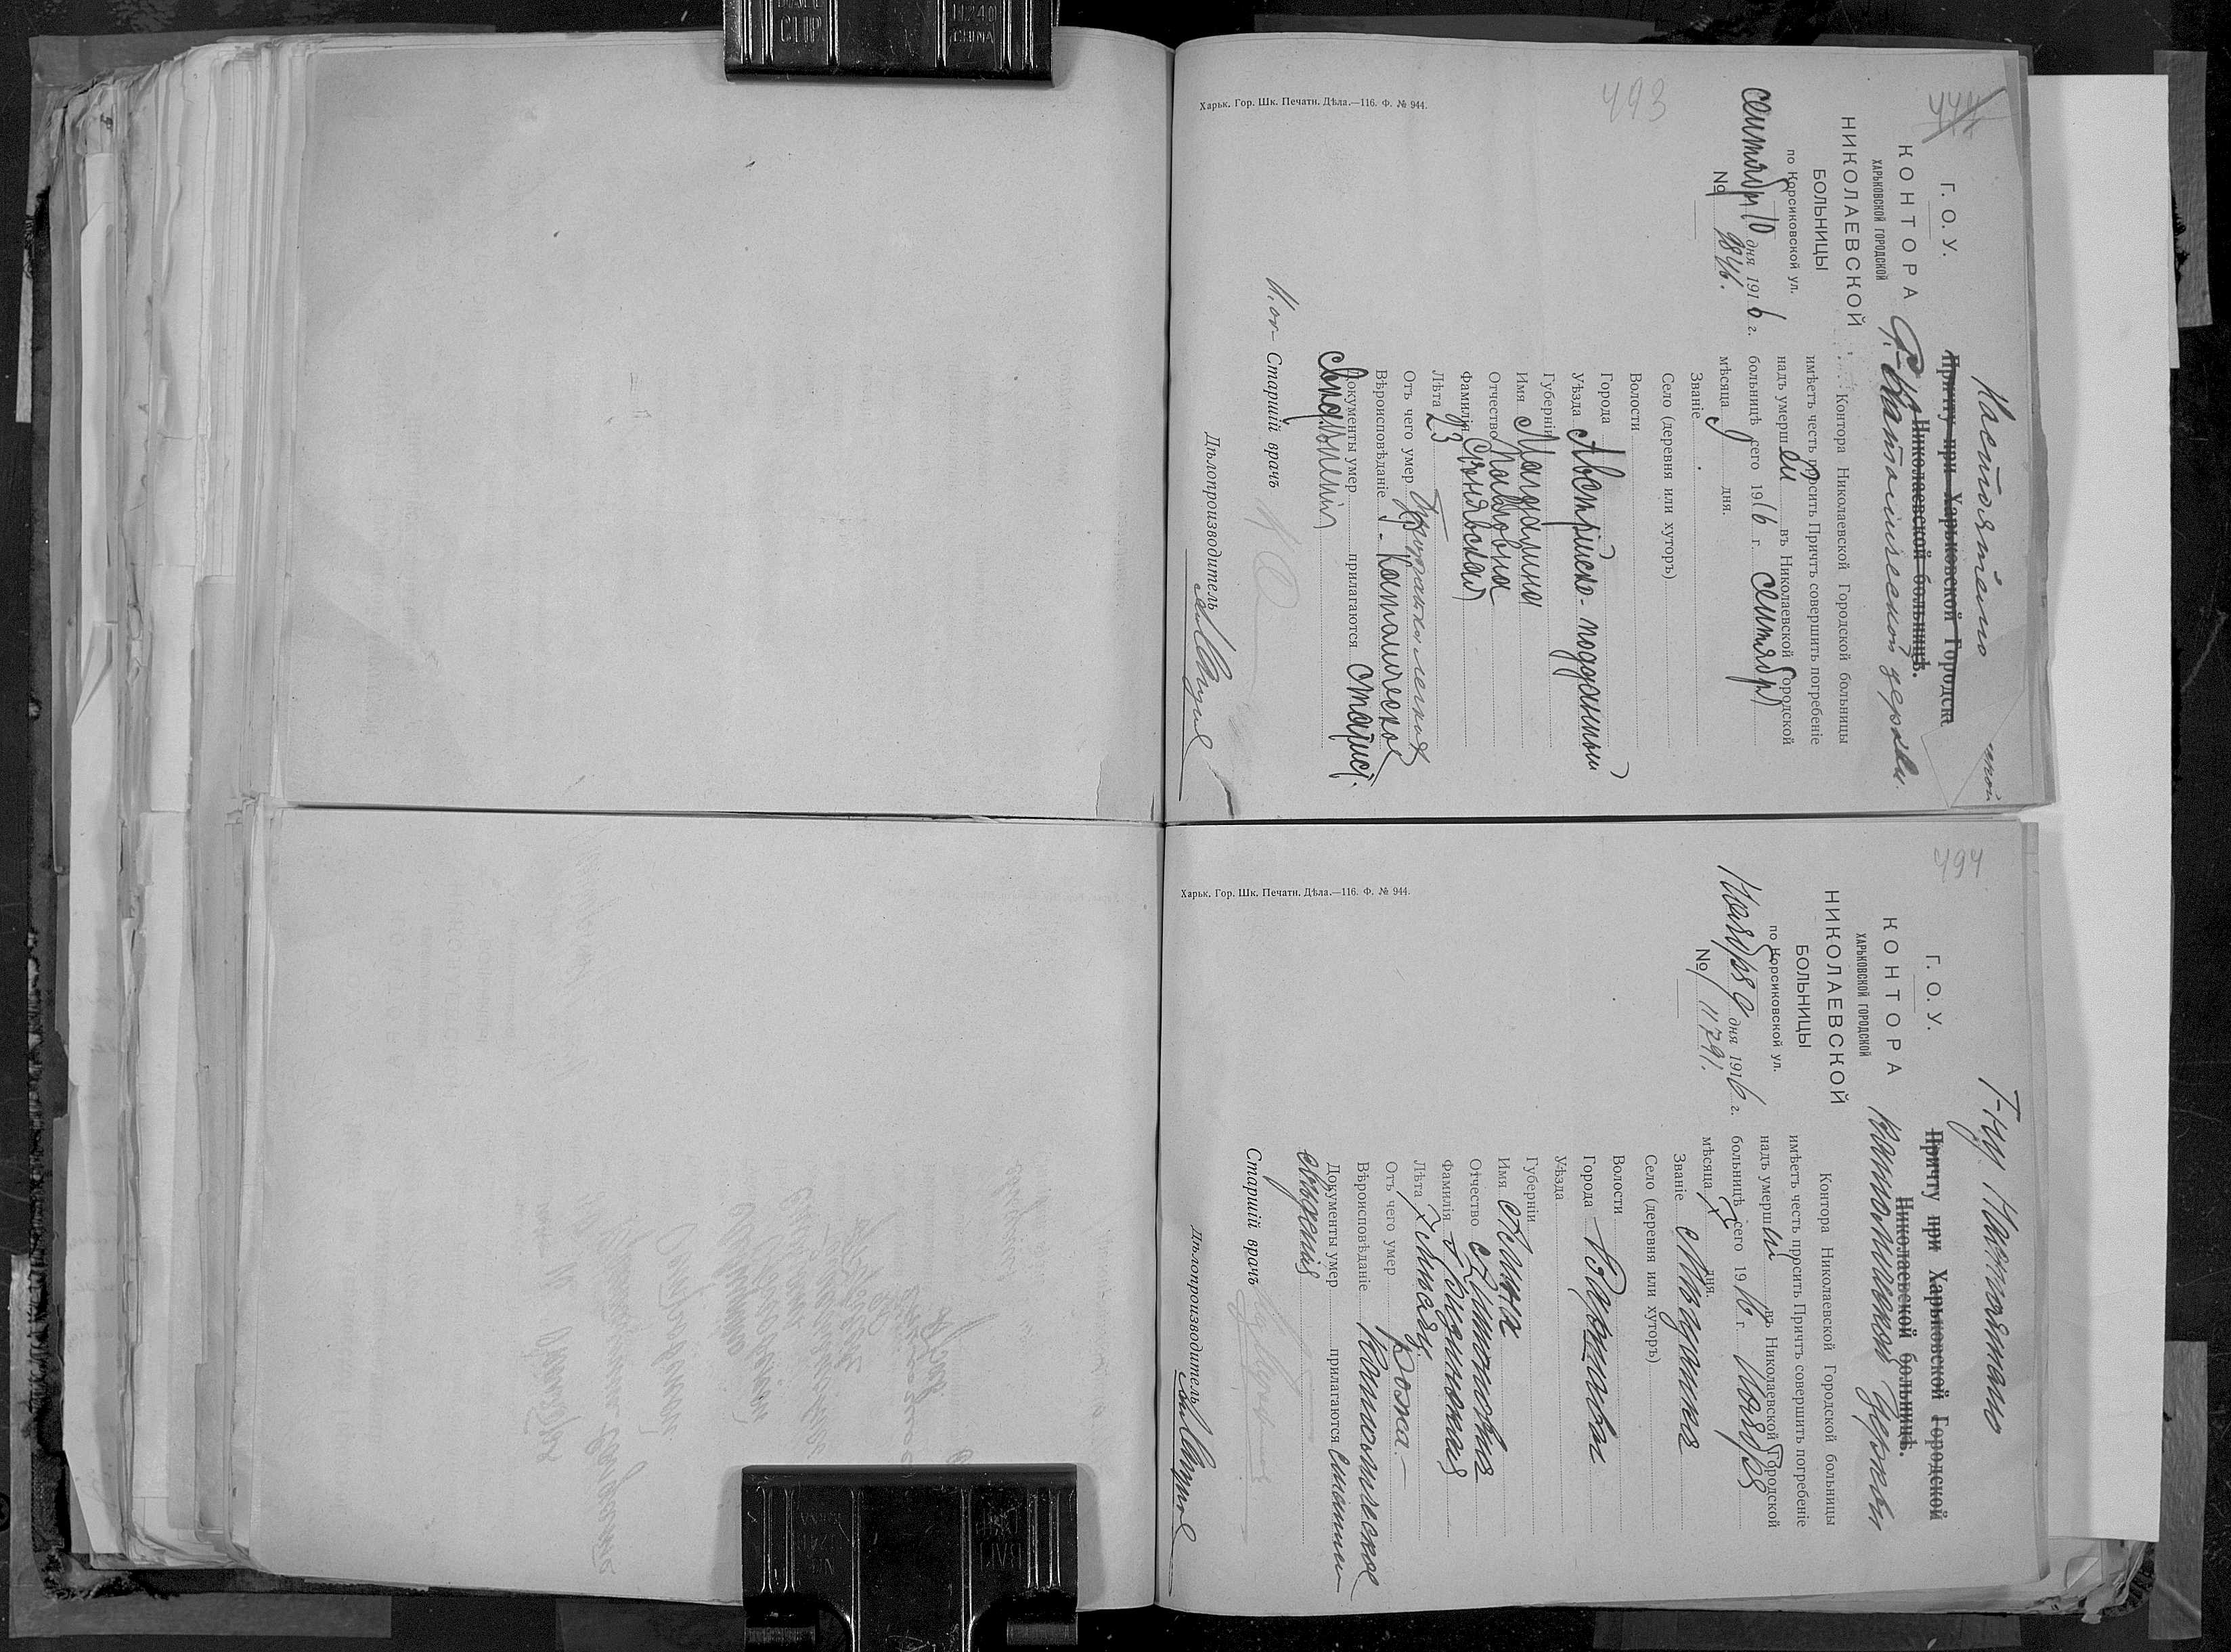 493
Г. О. У.
КОНТОРА
ХАРЬКОВСКОЙ ГОРОДСКОЙ
НИКОЛАЕВСКОЙ
БОЛЬНИЦЫ
по Корсиковской ул.
сентября 10 дня 1916 г.
№ 9846.
Настоятелю
Причту при Харьковской Городск
Николаевской больницѣ.
Р.-Католической церкви.
Контора Николаевской Городской больницы
имѣетъ честь просить Причтъ совершить погребеніе
надъ умершей въ Николаевской Городской
больницѣ сего 1916 г. сентября
мѣсяца 9 дня.
Званіе
Село (деревня или хуторъ)
Волости
Города
Уѣзда Австрійско-подданный
Губерніи
Имя Магдалина
Отчество Павловна
Фамилія
Лѣта 23
Отъ чего умер легких
Вѣроисповѣданіе Р.-Католическое
Документы умер прилагаются статист.
свѣдѣнія
Старшій врачъ
Дѣлопроизводитель
Харьк. Гор. Шк. Печатн. Дѣла.—116. Ф. № 944.
494
Г. О. У.
КОНТОРА
ХАРЬКОВСКОЙ ГОРОДСКОЙ
НИКОЛАЕВСКОЙ
БОЛЬНИЦЫ
по Корсиковской ул.
Ноября 9 дня 1916 г.
№ 11791.
Г-ну Настоятелю
Причту при Харьковской Городской
Николаевской больницѣ.
Католической Церкви
Контора Николаевской Городской больницы
имѣетъ честь просить Причтъ совершить погребеніе
надъ умерш въ Николаевской Городской
больницѣ сего 1916 г. Ноября
мѣсяца дня.
Званіе Мѣщанка
Село (деревня или хуторъ)
Волости
Города Варшавы
Уѣзда
Губерніи
Имя Анна
Отчество Антоновна
Фамилія
Лѣта 7 мѣсяц.
Отъ чего умер Рожа.—
Вѣроисповѣданіе Католическое
Документы умер прилагаются
свѣдѣнія
Старшій врачъ
Дѣлопроизводитель
Харьк. Гор. Шк. Печатн. Дѣла.—116. Ф. № 944.